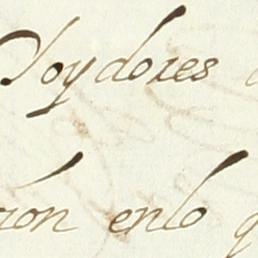 Ooydores
ron enlo q